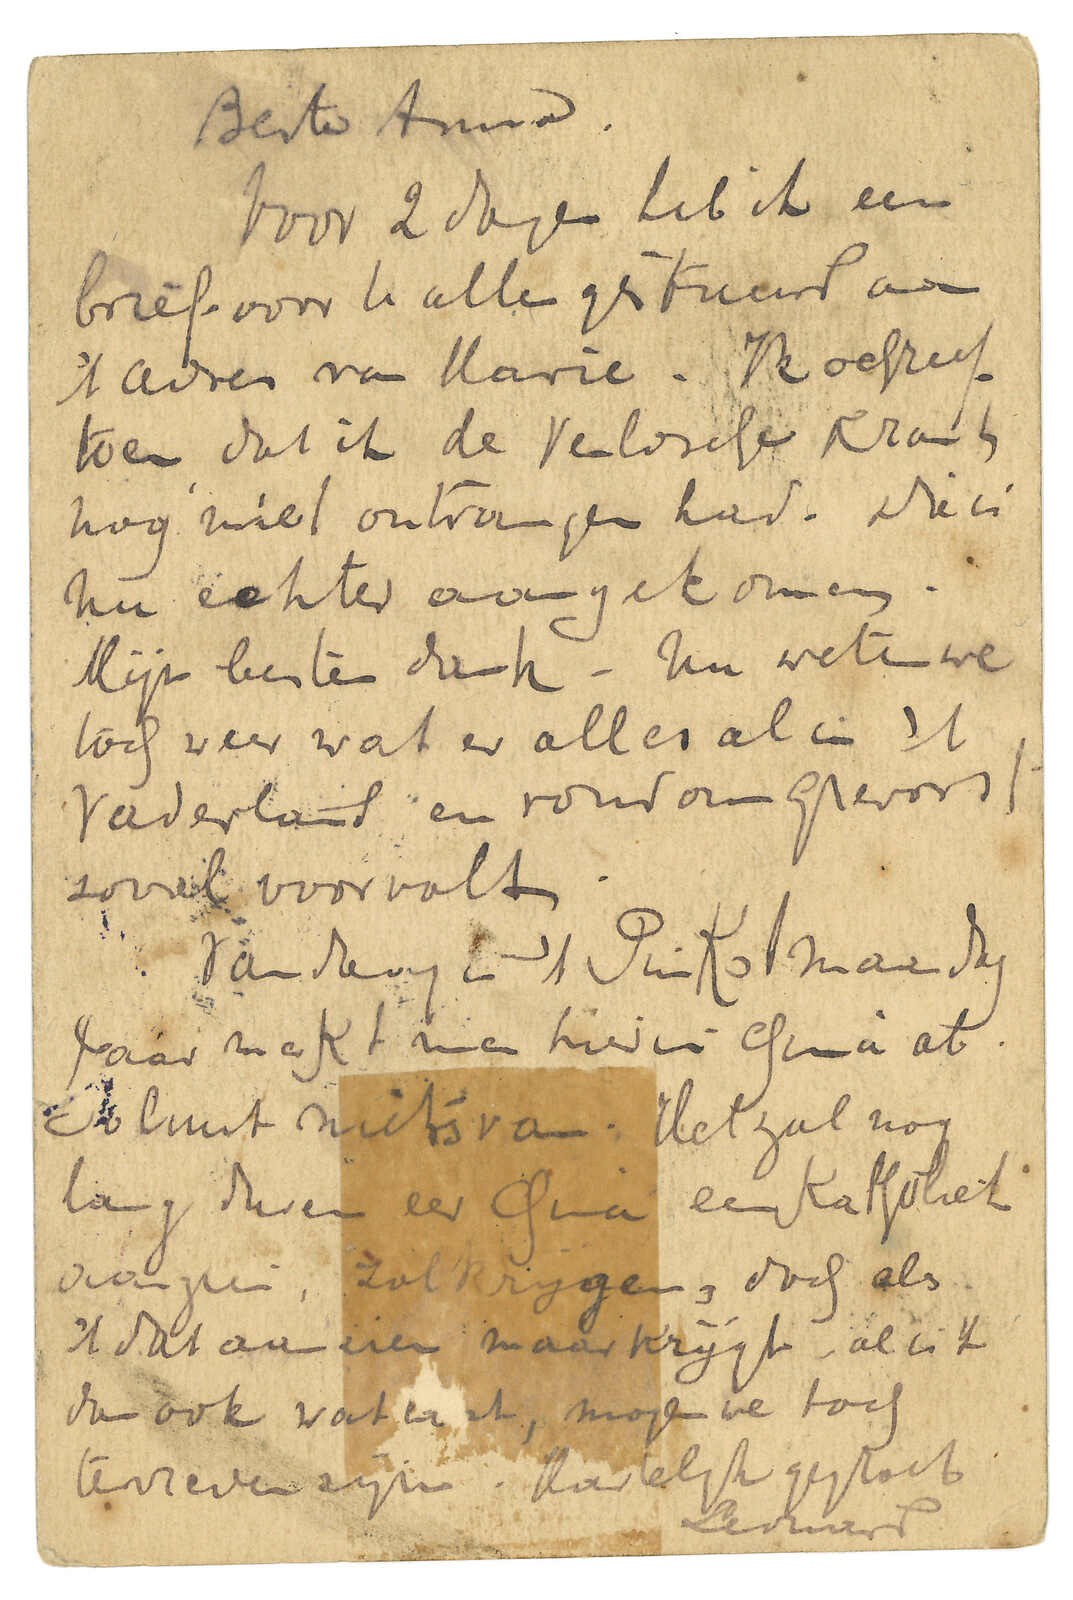 Beste Anna.
Voor 2 dagen heb ik een
brief voor u allen gestuurd aan
't adres van Marie. Ik schreef
toen dat ik de Venlosche Krant
nog niet ontvangen had. Die is
nu echter aangekomen.
Mijn besten dank - Nu weten we
toch weer wat er alles al in 't
Vaderland en rondom Grevorst
zoveel voorvalt.
Vandaag is 't Pinkstmaandag
daar merkt men hier in China at.
niets van. Het zal nog
lang duren eer China een Katholiek
aanzien, zal krijgen, doch als
't dat aanzien maar krijgt, al is 't
dan ook wat laat, mogen we toch
tevreden zijn. Hartelijk gegroet
Leonard